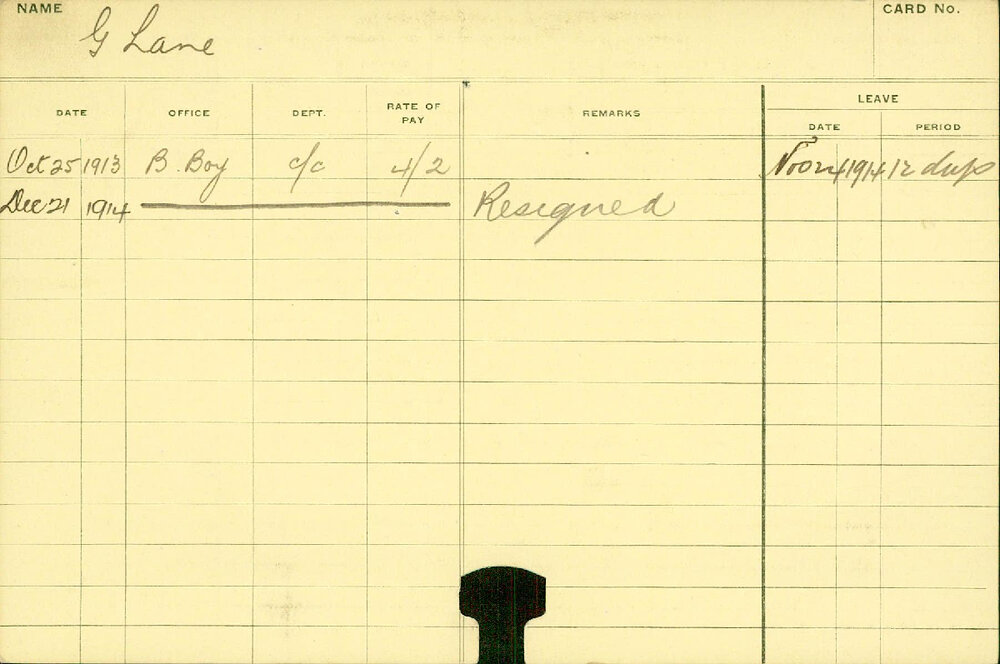 NAME
G Lane
CARD No.
DATE OFFICE DEPT. RATE OF PAY REMARKS LEAVE
DATE PERIOD
Oct 25 1913 B. Boy c/c 4/2 Nov 24 1914 12 days
Dec 21 1914 Resigned